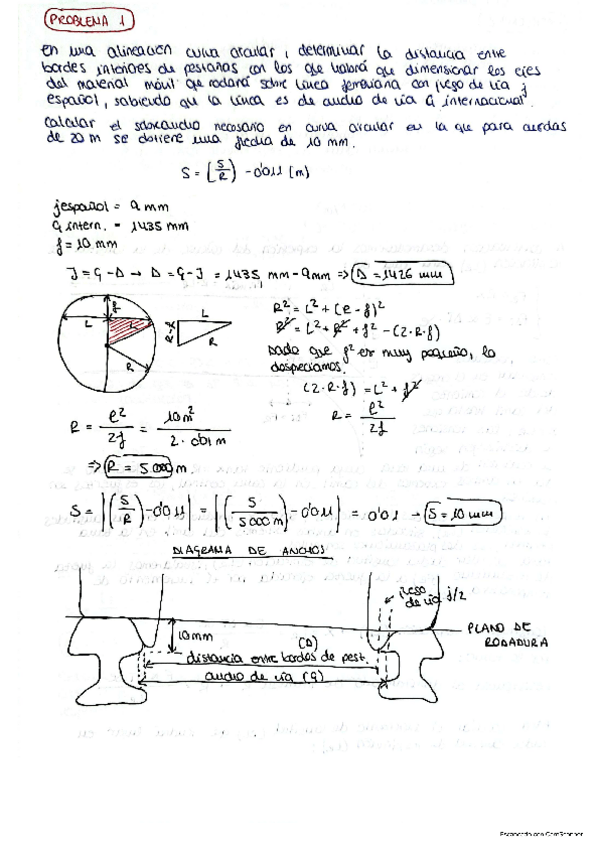 PROBLEMA 1
en una alineación curva circular, determinar la distancia entre
bordes interiores de pestañas con los que habrá que dimensionar los ejes
del material móvil que rodará sobre línea ferroviaria con juego de vía j
español, sabiendo que la línea es de ancho de vía G internacional.
Calcular el sobreancho necesario en curva circular en la que para cuerdas
de 20 m se obtiene una flecha de 10 mm.
S = (S/R) - 0'011 (m)
jespañol = 9 mm
G intern. = 1435 mm
f = 10 mm
J = G - D → D = G - J = 1435 mm - 9 mm ⇒ D = 1426 mm
f
L
L
R
L
R-x
R
R² = L² + (R - f)²
R² = L² + R² + f² - (2·R·f)
Dado que f² es muy pequeño, lo
despreciamos.
(2·R·f) = L² + f²
R = l²/2f
R = l²/2f = 10 m²/2·0'01 m
⇒ R = 5000 m
S = |(S/R) - 0'011| = |(5/5000 m) - 0'011| = 0'01 → S = 10 mm
DIAGRAMA DE ANCHOS
juego
de vía j/2
PLANO DE
RODADURA
10 mm
(D)
distancia entre bordes de pest.
ancho de vía (G)
Escaneado con CamScanner